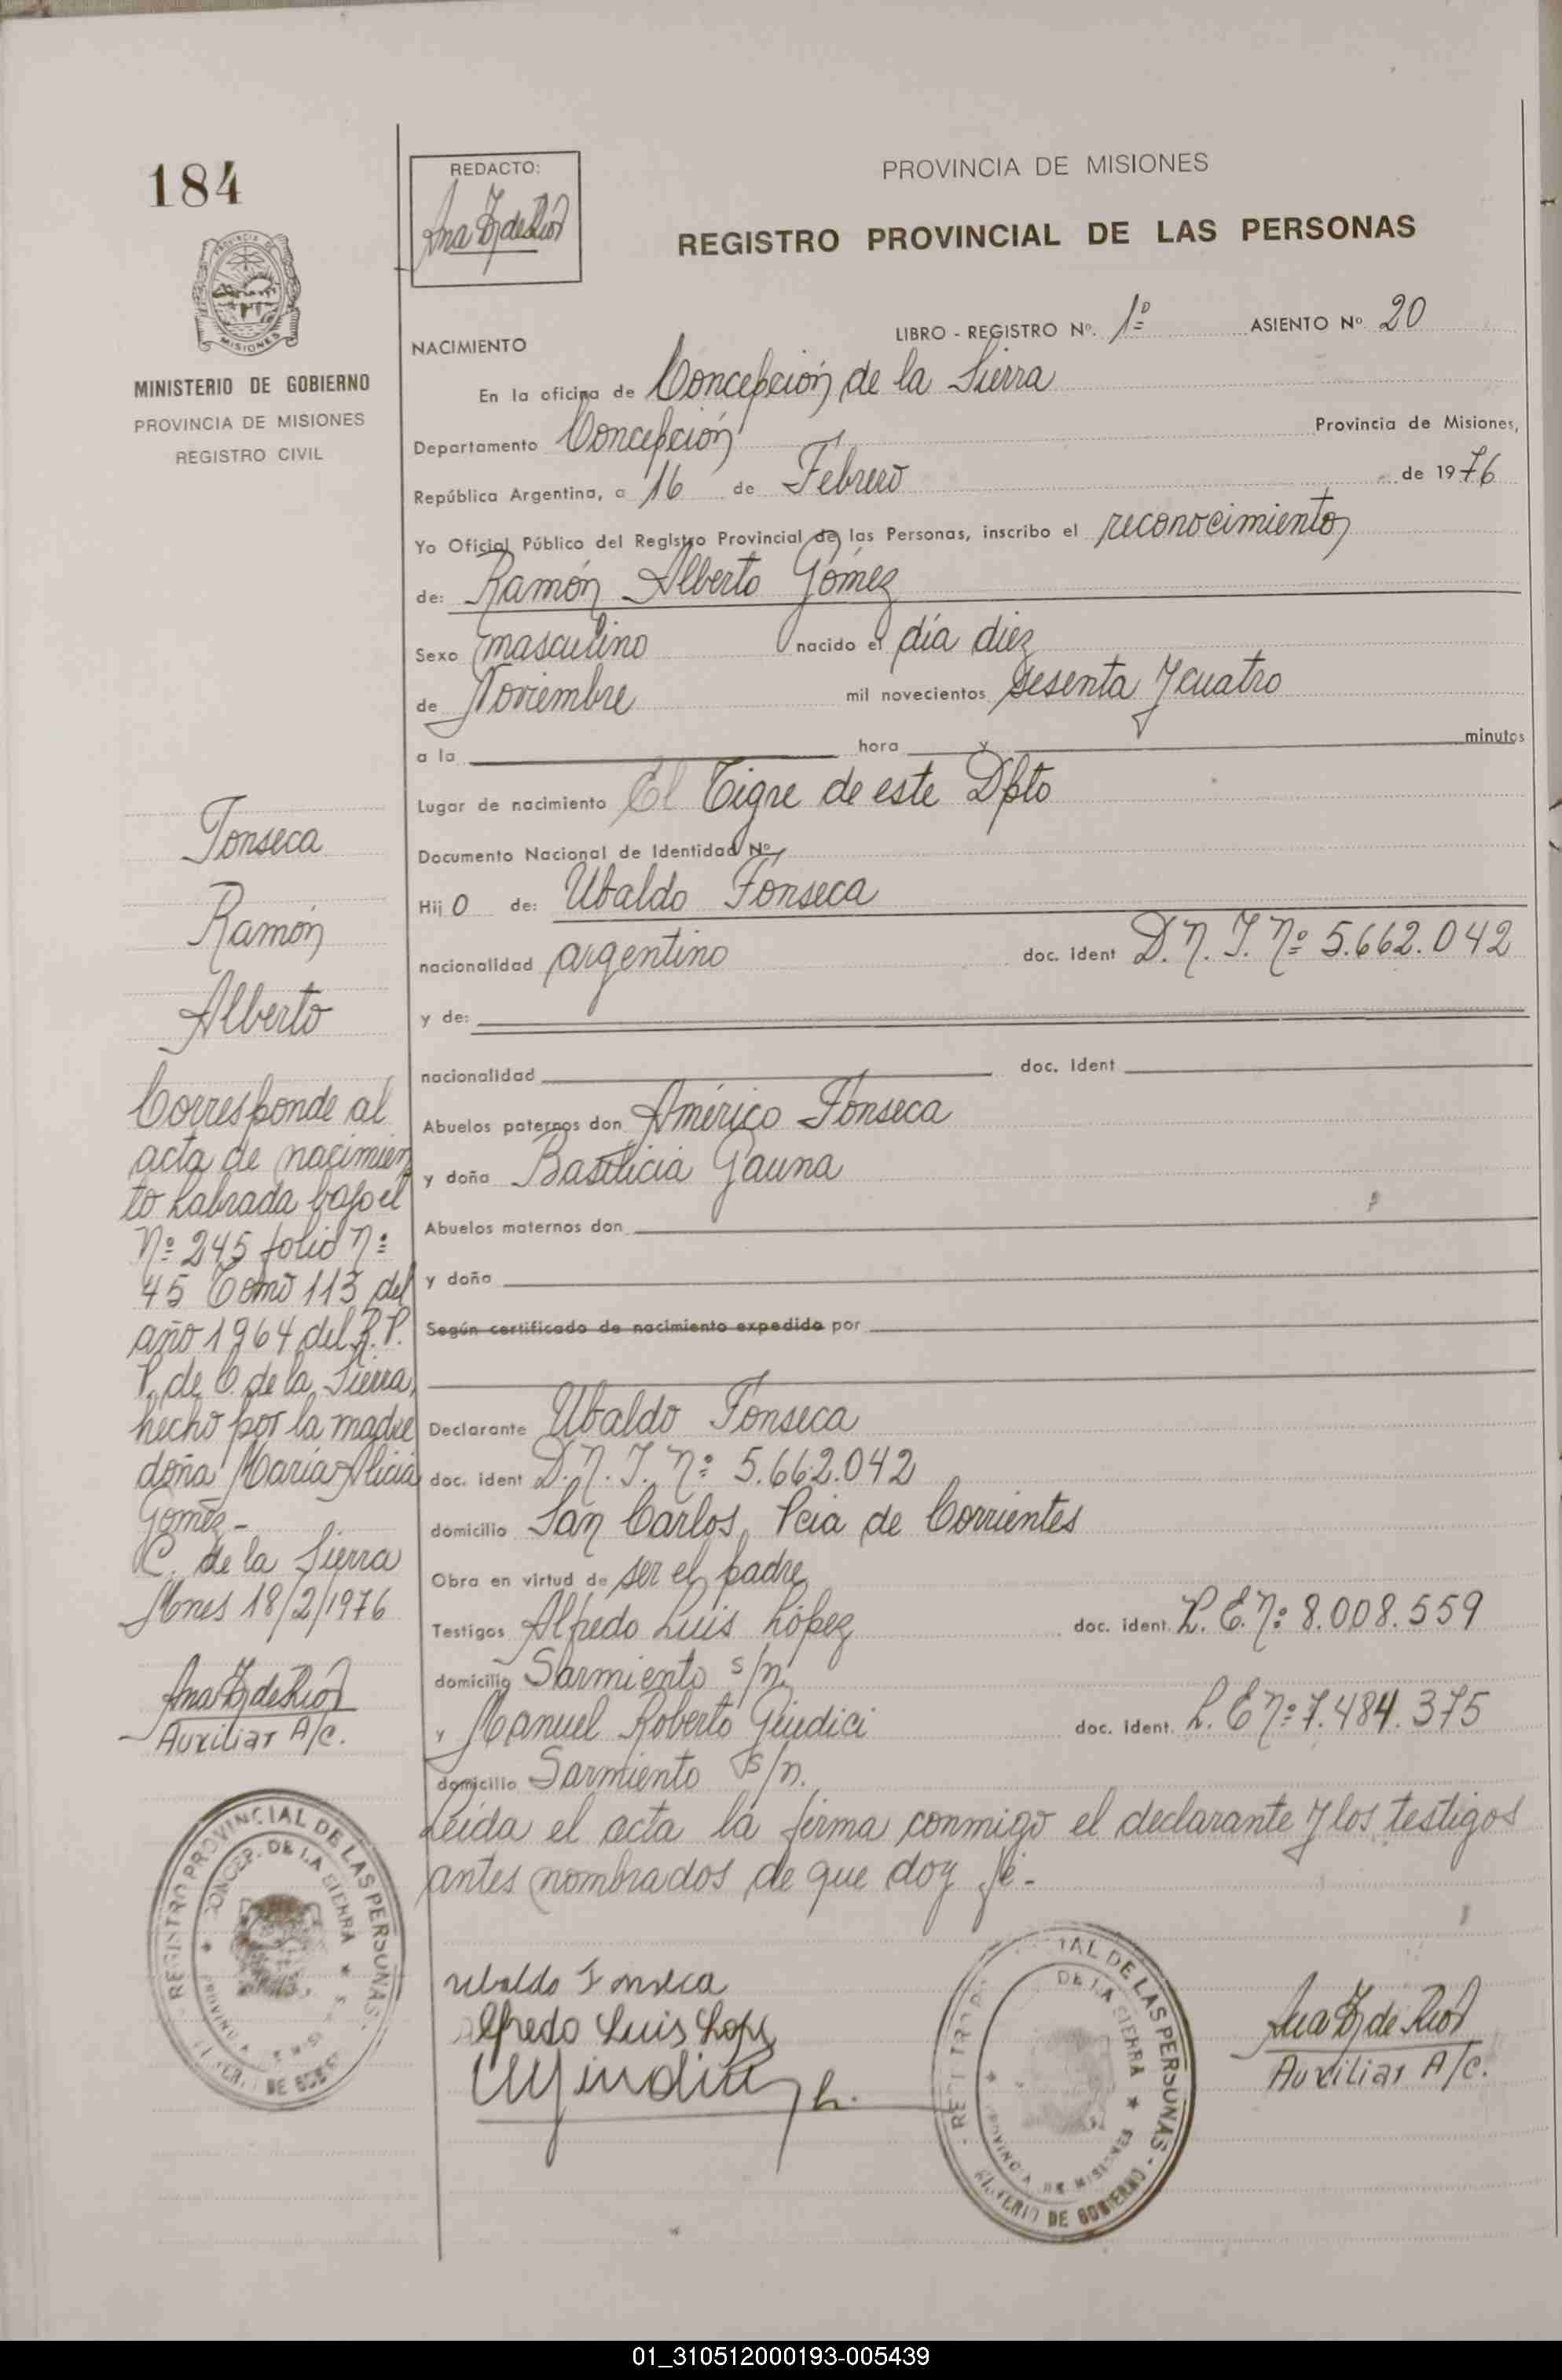 184
REDACTO:
PROVINCIA DE MISIONES
REGISTRO PROVINCIAL DE LAS PERSONAS
MISIONES
MINISTERIO DE GOBIERNO
PROVINCIA DE MISIONES
REGISTRO CIVIL
NACIMIENTO
LIBRO - REGISTRO Nº. 1º ASIENTO Nº 20
En la oficina de Concepción de la Sierra
Departamento Concepción Provincia de Misiones,
República Argentina, a 16 de Febrero de 1976
Yo Oficial Público del Registro Provincial de las Personas, inscribo el reconocimiento
de: Ramón Alberto Gómez
Sexo masculino nacido el día diez
de Noviembre mil novecientos sesenta y cuatro
a la hora y minutos
Lugar de nacimiento El Tigre de este Dpto
Documento Nacional de Identidad Nº
Hij o de: Ubaldo Fonseca
nacionalidad argentino doc. ident D.N.I. Nº 5.662.042
y de:
nacionalidad doc. Ident
Abuelos paternos don Américo Fonseca
y doña Basilicia Gauna
Abuelos maternos don
y doña
Según certificado de nacimiento expedido por
Declarante Ubaldo Fonseca
doc. ident D.N.I. Nº 5.662.042
domicilio San Carlos, Pcia de Corrientes
Obra en virtud de ser el padre
Testigos Alfredo Luis López doc. ident. L.E. Nº 8.008.559
domicilio Sarmiento s/n.
y Manuel Roberto Giudici doc. ident. L.E Nº 7.484.375
domicilio Sarmiento s/n.
Leída el acta la firma conmigo el declarante y los testigos
antes nombrados de que doy fé.-
Fonseca
Ramón
Alberto
Corresponde al
acta de nacimien
to labrada bajo el
Nº 245 folio Nº
45 Tomo 113 del
año 1964 del R.P.
P. de C. de la Sierra,
hecho por la madre
doña María Alicia
Gomez-
C. de la Sierra
Mnes 18/2/1976
Auxiliar A/c.
REGISTRO PROVINCIAL DE LAS PERSONAS
CONCEP. DE LA SIERRA
Ubaldo Fonseca
Alfredo Luis Lopez
DE LAS PERSONAS
DE LA SIERRA
PROVINCIA DE MISIONES
MINISTERIO DE GOBIERNO
Auxiliar A/c.
01_310512000193-005439